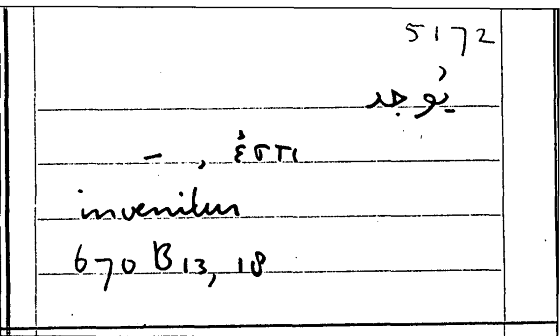 5172
يُوجد
–, ἐστι
invenitur
670 B 13, 18